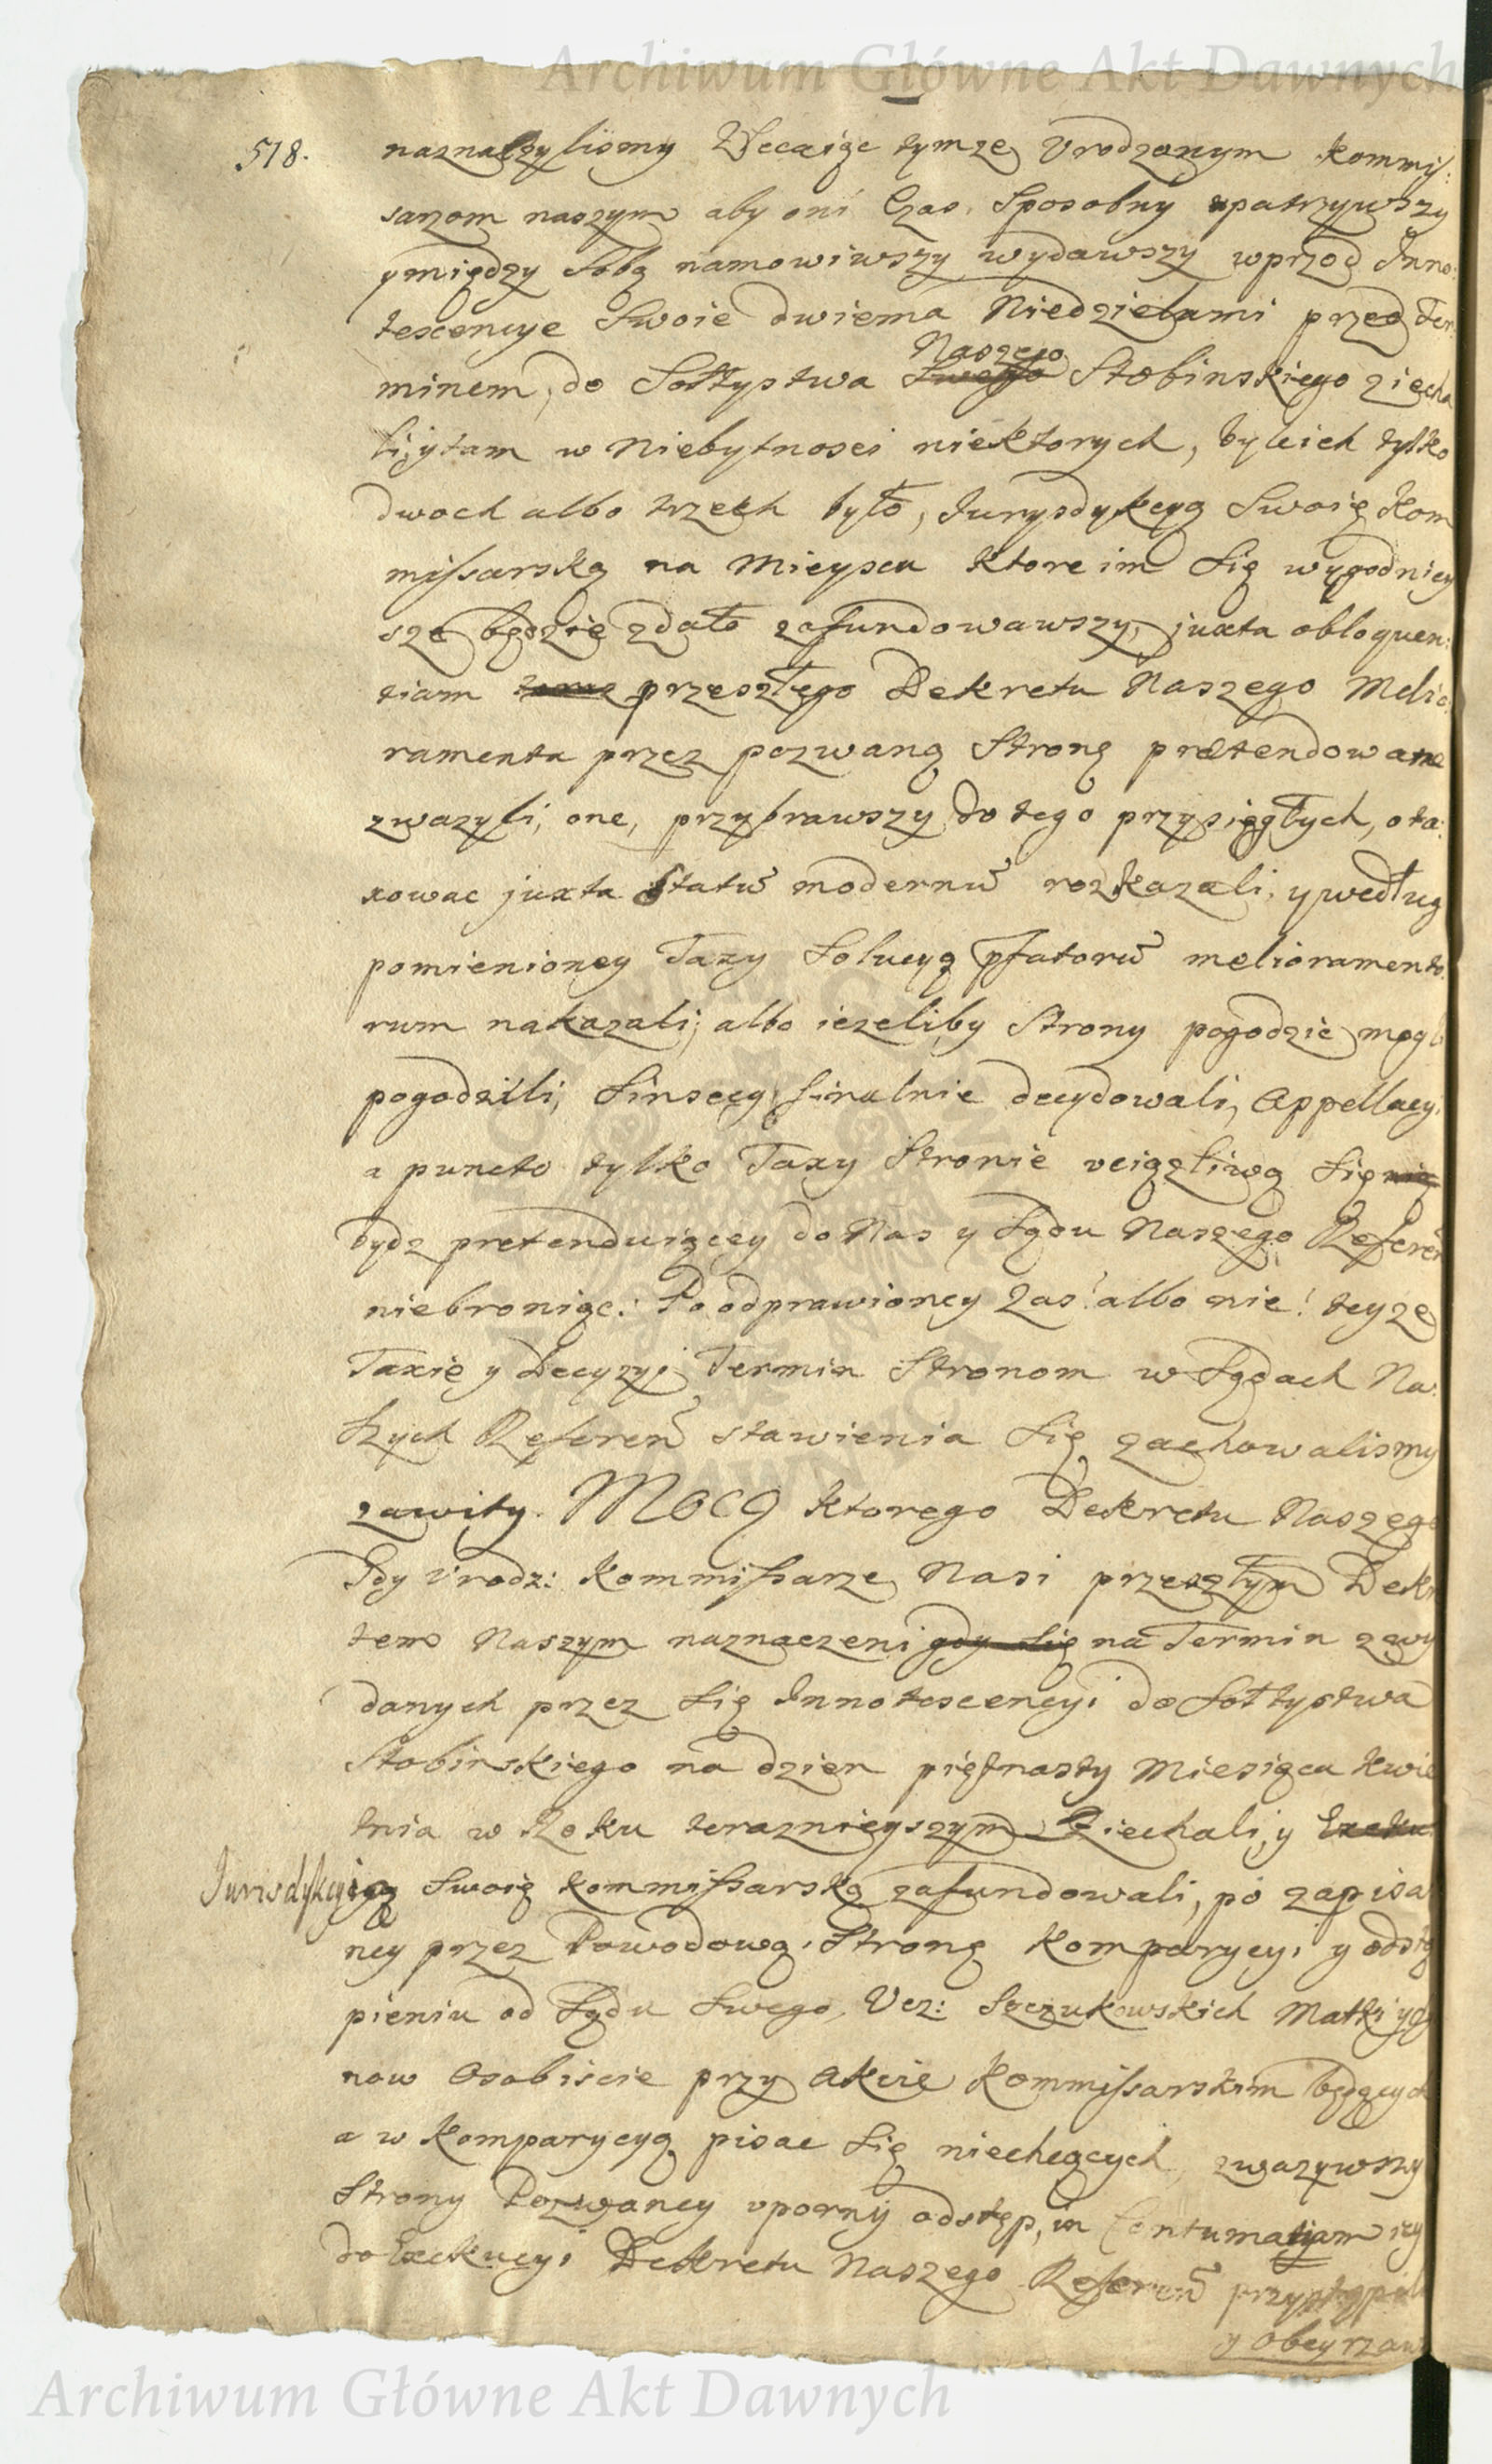 Archiwum Główne Akt Dawnych
518.
naznaczylismy Zlecaiąc tymze Vrodzonym Kommis:
sarzom naszym aby oni Czas Sposobny upatrzywszy
ymiędzy Sobą namowiwszy wydawszy wprzod Inno:
tescencye Swoie dwiema Niedzielami przed Ter:
Naszego
minem, do Sołtystwa Swego Stobinskiego ziecha
li, ytam w Niebytnosci niektorych, byleich tylko
dwoch albo trzech było, Jurysdykcyą Swoię Kom
missarską na Mieyscu ktore im Się wygodniey
sze będzie zdało zafundowawszy, juxta obloquen:
tiam przeszłego Dekretu Naszego Melio:
ramenta przez pozwaną Stronę prætendowane
zwazyli, one, przybrawszy do tego przysięgłych, ota:
xowac juxta Statū modernū rozkazali, y według
pomienioney Taxy Solucyą pfatorū melioramento
rum nakazali; albo iezeliby Strony pogodzic mogli
pogodzili, Sinsecg finalnie decydowali, Appellacyi
a puncto tylko Taxy Stronie vciązliwą Się nię
bydz pretenduiącey do Nas y Sądu Naszego Referen̄
niebroniąc: Po odprawioney Zas! albo nie! teyze
Taxie y Decyzyi Termin Stronom w Sądach Na:
szych Referen̄ stawienia Się zachowalismy
zawity. Mocą ktorego Dekretu Naszego
Gdy Vrodz: Kommissarze Nasi przeszłym Dekr
tem Naszym naznaczeni gdy Się na Termin zwy
danych przez Się Innotescencyi do Sołtystwa
Stobinskiego na dzien piętnasty Miesiąca Kwie
tnia w Roku terazniejszym Ziechali, y Exeku
Jurisdykcyią Swoię Kommissarską zafundowali, po zapisa
ney przez Powodową Stronę Komparycyi y odstą
pieniu od Sądu Swego, Vcz: Szczukowskich Matki y Sy
now Osobiscie przy Akcie Kommissarskim będących
a w Komparycyą pisac Się niechcących, zwazywszy
Strony Pozwaney vporny odstęp, in Contumatiam iey
do Exekucyi Dekretu Naszego Referen̄ przystąpili
y obeyrzaw
Archiwum Główne Akt Dawnych